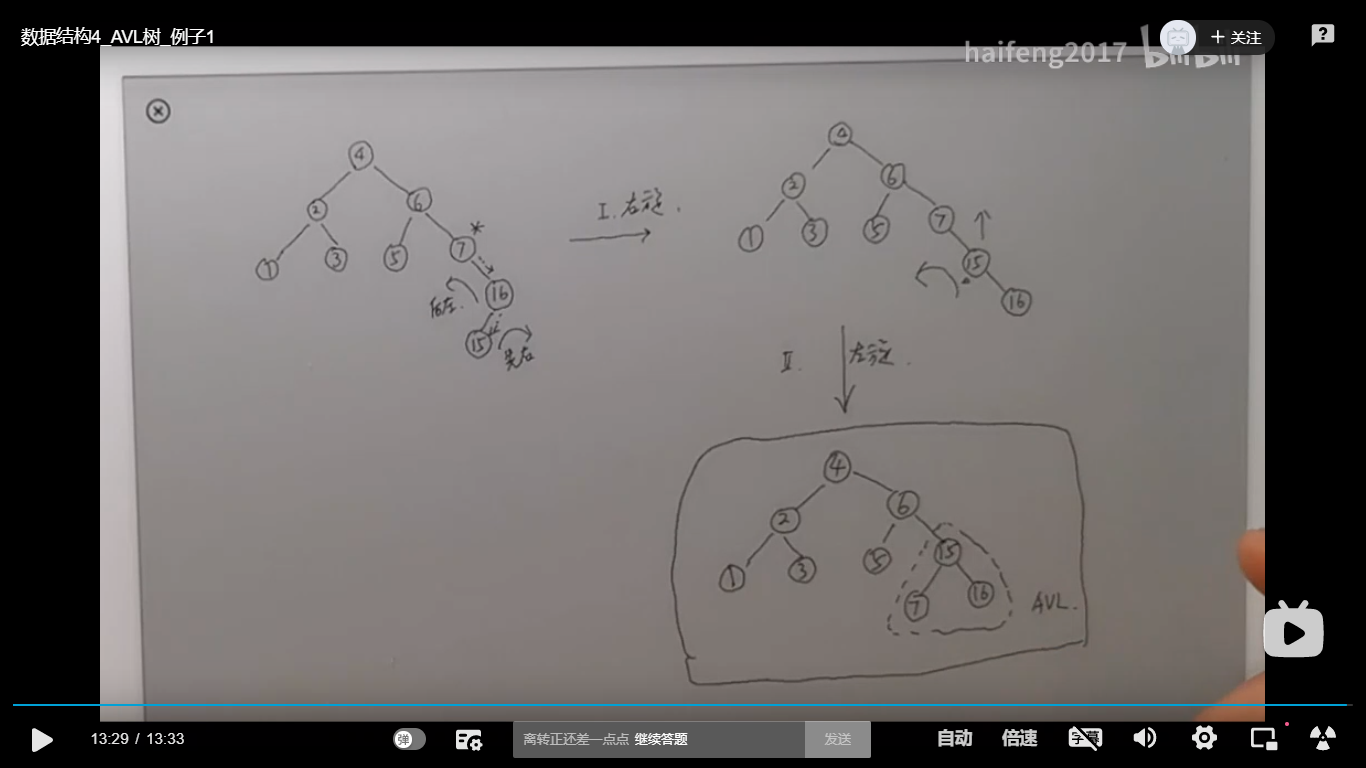 数据结构4_AVL树_例子1
haifeng2017 bilibili
+ 关注
?
4
2 6
1 3 5 7 *
16
后左.
15
先右
I. 右旋.
4
2 6
1 3 5 7
15
16
II. 左旋.
4
2 6
1 3 5 15
7 16 AVL.
13:29 / 13:33
弹
离转正还差一点点 继续答题
发送
自动
倍速
字幕